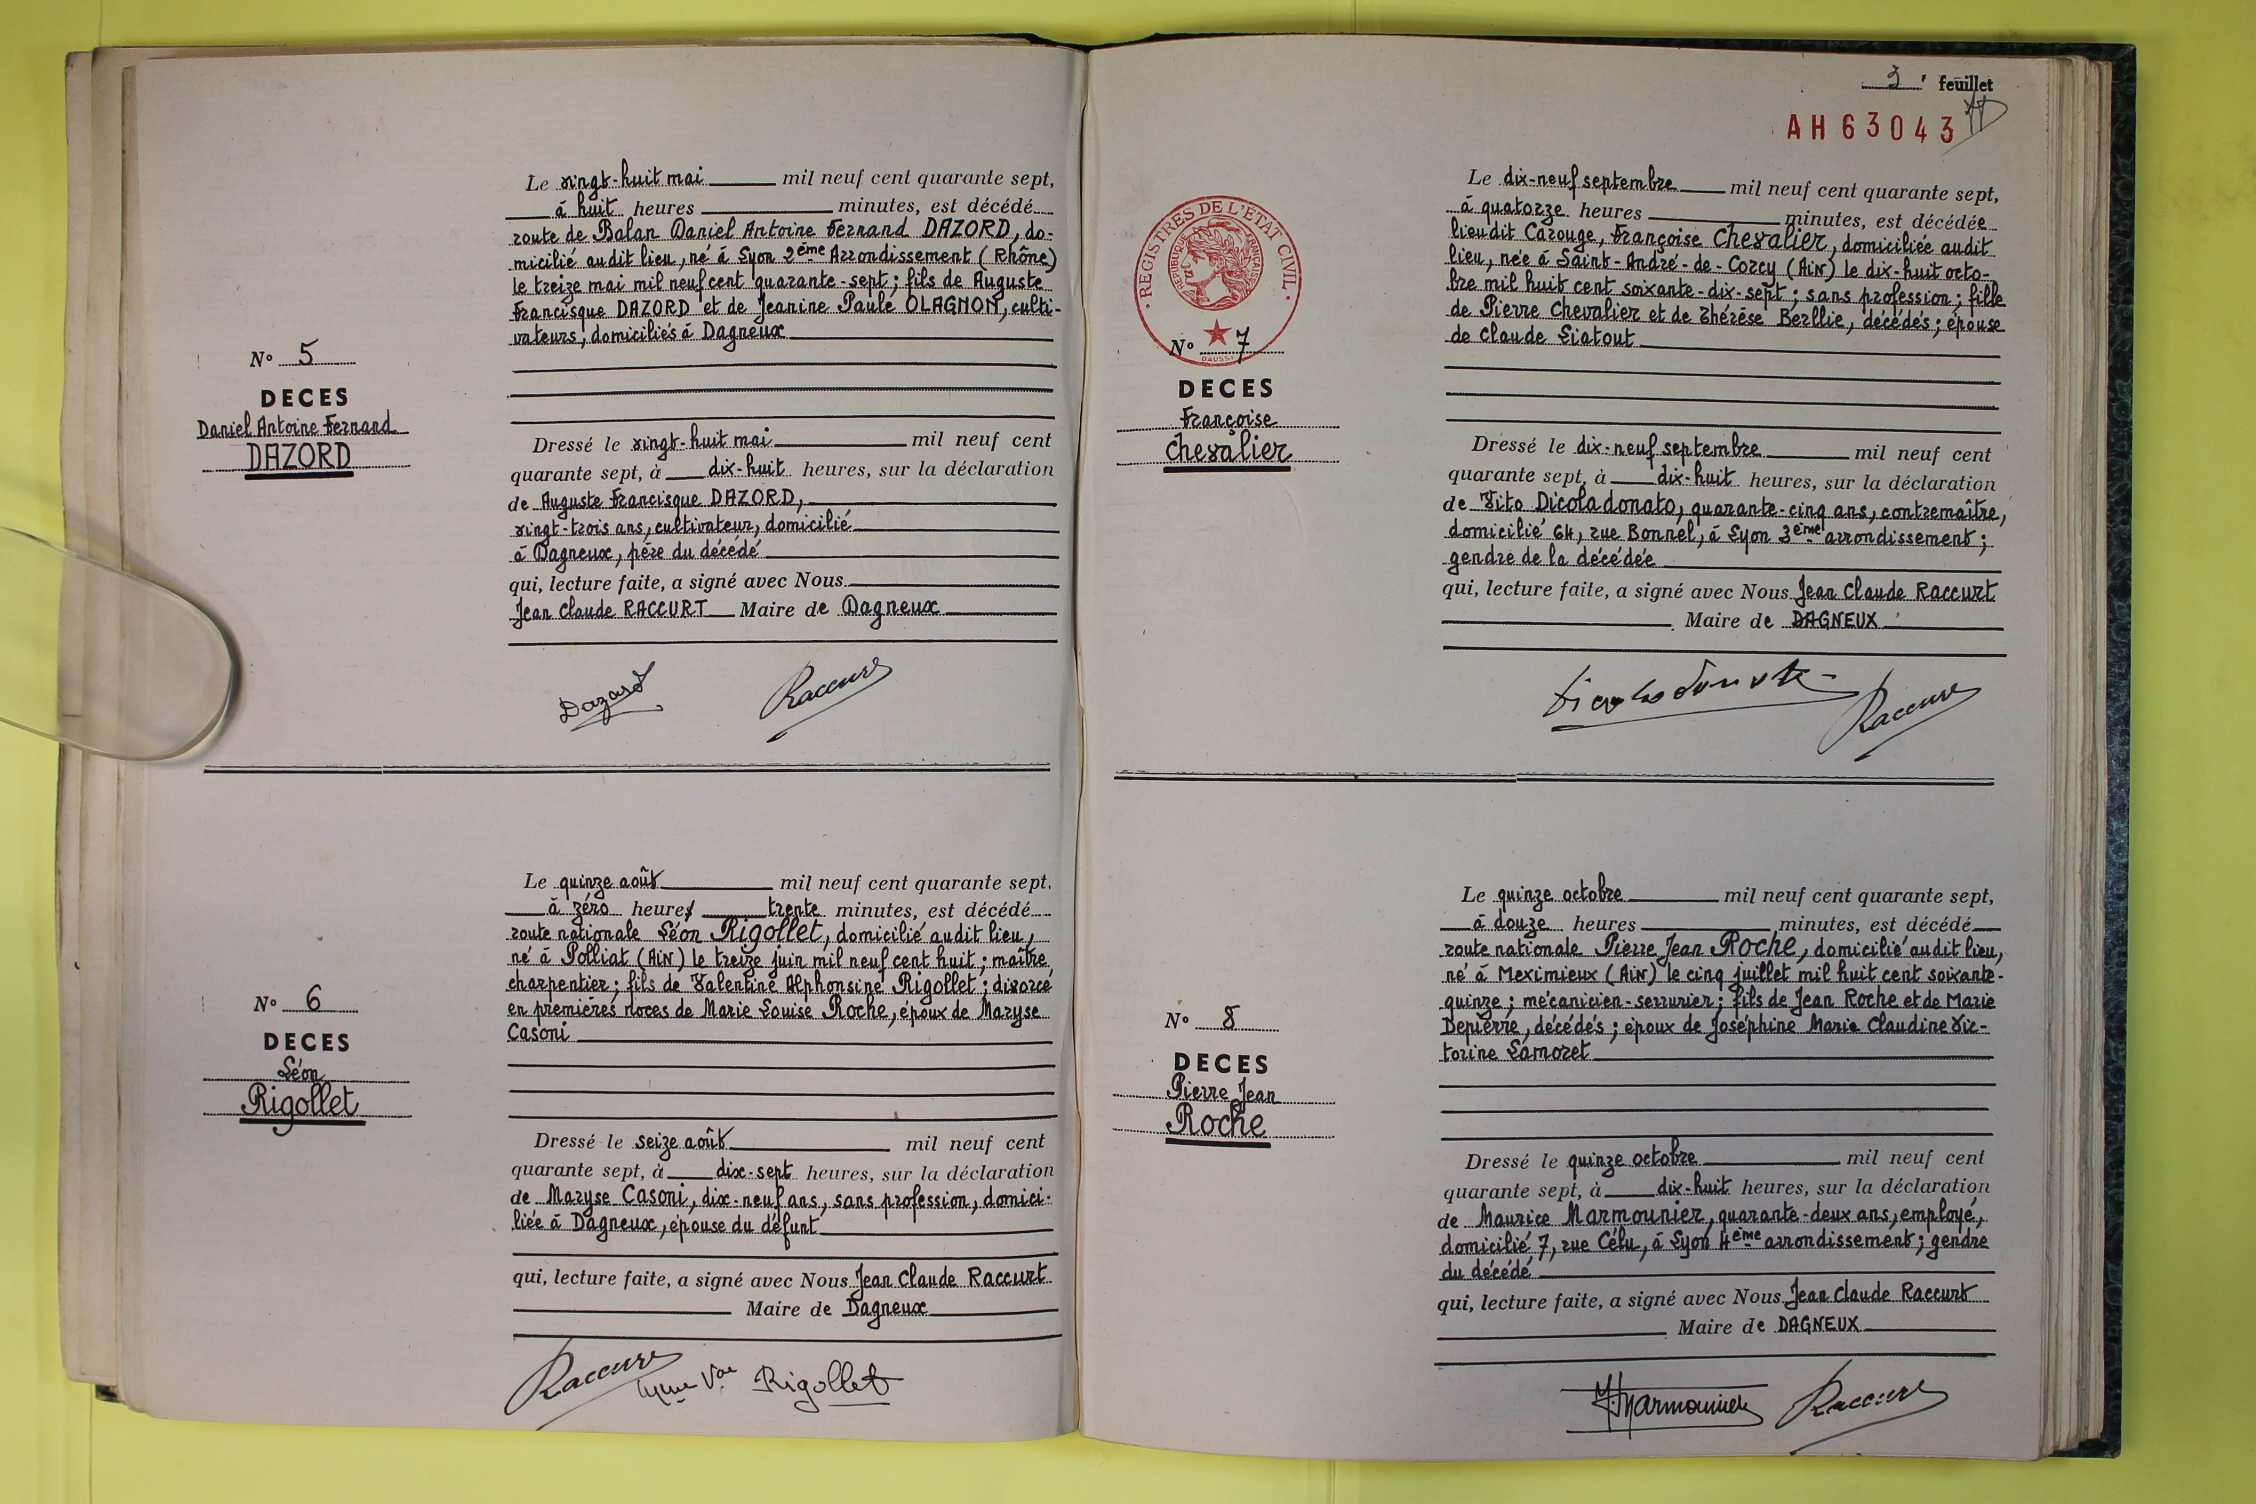 Le vingt-huit mai mil neuf cent quarante sept,
à huit heures minutes, est décédé
route de Balan Daniel Antoine Fernand DAZORD, do-
micilié audit lieu, né à Lyon 2ème Arrondissement (Rhône)
le treize mai mil neuf cent quarante-sept ; fils de Auguste
Francisque DAZORD et de Jeanine Paule OLAGNON, culti-
vateurs, domiciliés à Dagneux
N° 5
DECES
Daniel Antoine Fernand
DAZORD
Dressé le vingt-huit mai mil neuf cent
quarante sept, à dix-huit heures, sur la déclaration
de Auguste Francisque DAZORD,
vingt-trois ans, cultivateur, domicilié
à Dagneux, père du décédé
qui, lecture faite, a signé avec Nous
Jean Claude RACCURT Maire de Dagneux
Dazord Raccurt
Le quinze août mil neuf cent quarante sept.
à zéro heures trente minutes, est décédé
route nationale Léon Rigollet, domicilié audit lieu,
né à Polliat (Ain) le treize juin mil neuf cent huit ; maître
charpentier ; fils de Valentine Alphonsine Rigollet ; divorcé
en premières noces de Marie Louise Roche, époux de Maryse
Casoni
N° 6
DECES
Léon
Rigollet
Dressé le seize août mil neuf cent
quarante sept, à dix-sept heures, sur la déclaration
de Maryse Casoni, dix-neuf ans, sans profession, domici-
liée à Dagneux, épouse du défunt
qui, lecture faite, a signé avec Nous Jean Claude Raccurt
Maire de Dagneux
Raccurt Mme Vve Rigollet
3 e feuillet
AH63043
REGISTRES DE L'ETAT CIVIL
REPUBLIQUE FRANCAISE
Le dix-neuf septembre mil neuf cent quarante sept,
à quatorze heures minutes, est décédée
lieudit Carouge, Françoise Chevalier, domiciliée audit
lieu, née à Saint-André-de-Corcy (Ain) le dix-huit octo-
bre mil huit cent soixante-dix-sept ; sans profession ; fille
de Pierre Chevalier et de Thérèse Berllie, décédés ; épouse
de Claude Liatout
N° 7
DAUSSY
DECES
Françoise
Chevalier
Dressé le dix-neuf septembre mil neuf cent
quarante sept, à dix-huit heures, sur la déclaration
de Vito Dicoladonato, quarante-cinq ans, contremaître,
domicilié 64, rue Bonnel, à Lyon 3ème arrondissement ;
gendre de la décédée
qui, lecture faite, a signé avec Nous Jean Claude Raccurt
Maire de DAGNEUX
Dicoladonato Raccurt
Le quinze octobre mil neuf cent quarante sept,
à douze heures minutes, est décédé
route nationale Pierre Jean Roche, domicilié audit lieu,
né à Meximieux (Ain) le cinq juillet mil huit cent soixante-
quinze ; mécanicien-serrurier ; fils de Jean Roche et de Marie
Depierre, décédés ; époux de Joséphine Marie Claudine Vic-
torine Lamoret
N° 8
DECES
Pierre Jean
Roche
Dressé le quinze octobre mil neuf cent
quarante sept, à dix-huit heures, sur la déclaration
de Maurice Marmounier, quarante-deux ans, employé,
domicilié 7, rue Célu, à Lyon 4ème arrondissement ; gendre
du décédé
qui, lecture faite, a signé avec Nous Jean Claude Raccurt
Maire de DAGNEUX
Marmounier Raccurt